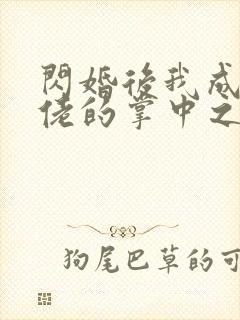 閃婚後我成
佬的掌中之
狗尾巴草的可